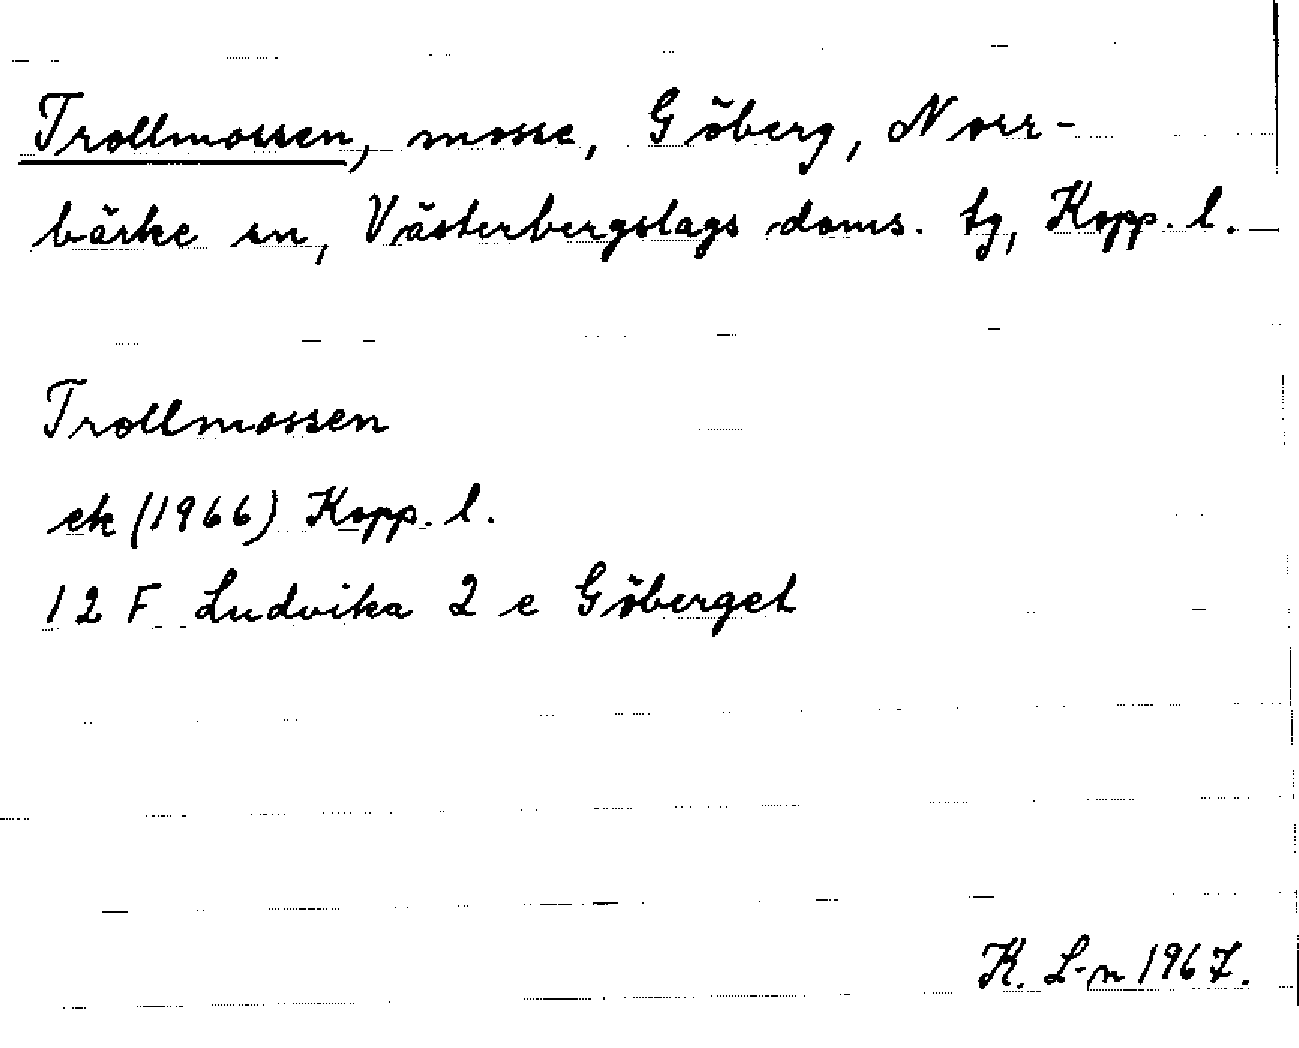 Trollmossen, mosse, Göberg, Norr-
bärke sn, Västerbergslags doms. tg, Kopp. l.
Trollmossen
ek (1966) Kopp. l.
12 F Ludvika 2 e Göberget
K. L-n 1967.